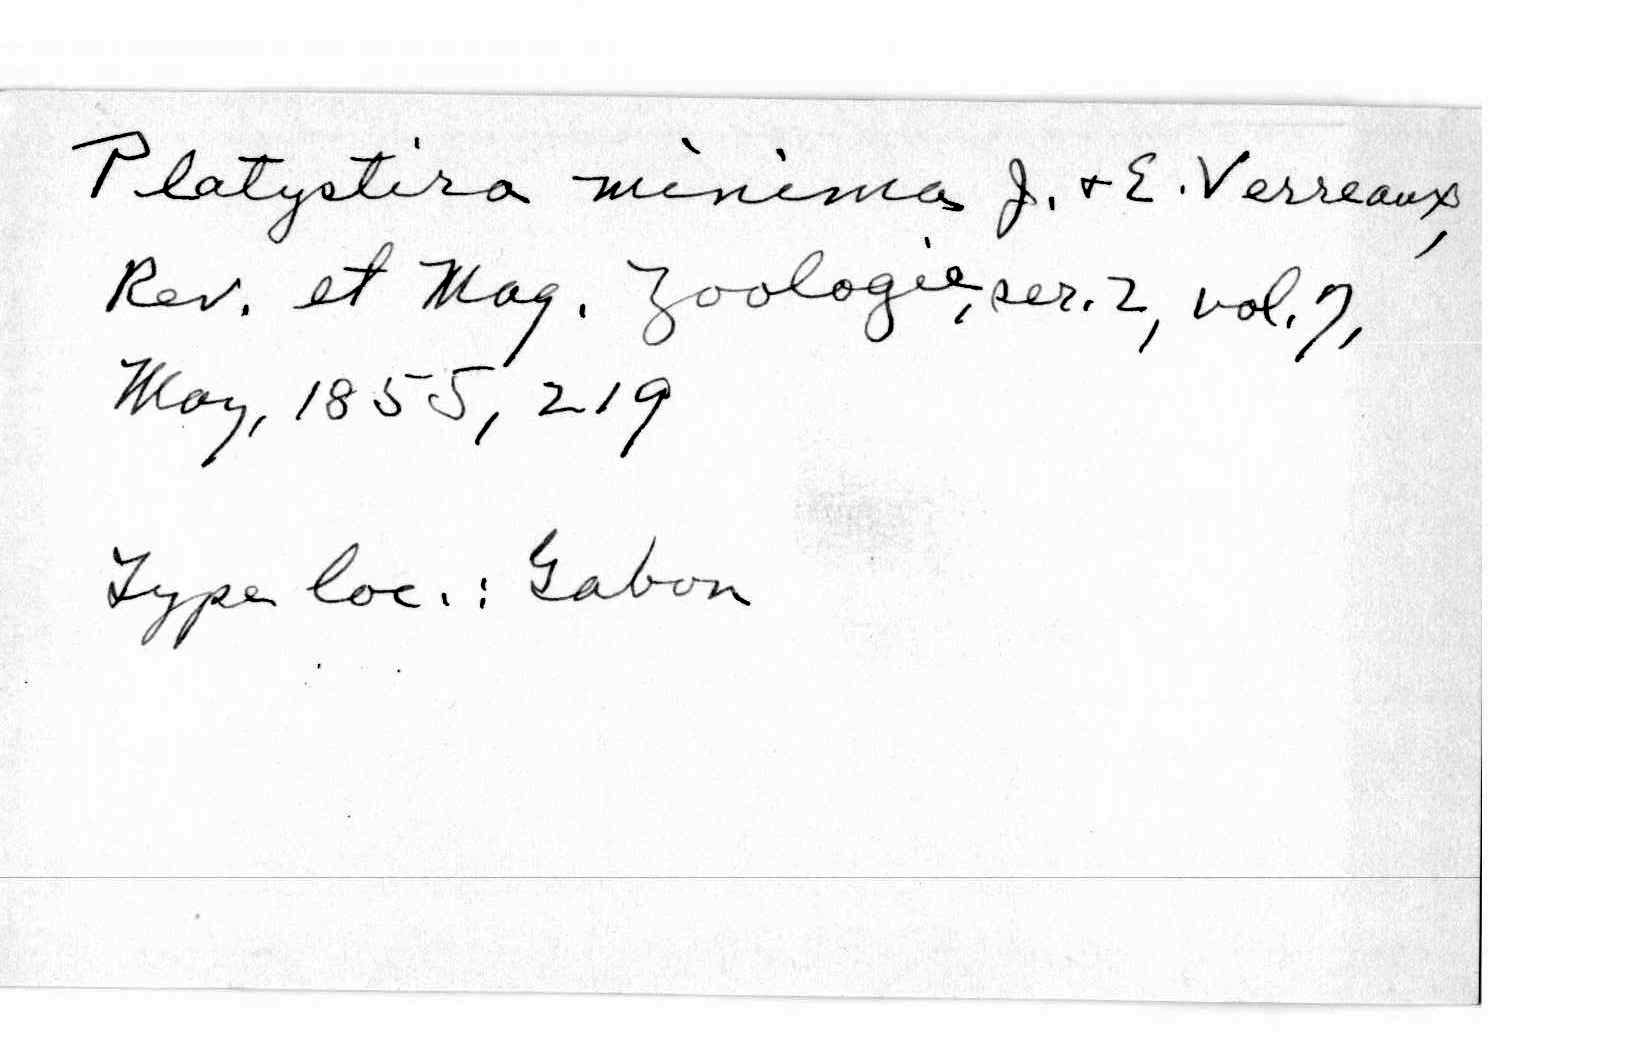 Platystira minima J. + E. Verreaux,
Rev. et Mag. Zoologie, ser. 2, vol. 7,
May, 1855, 219
Type loc. : Gabon